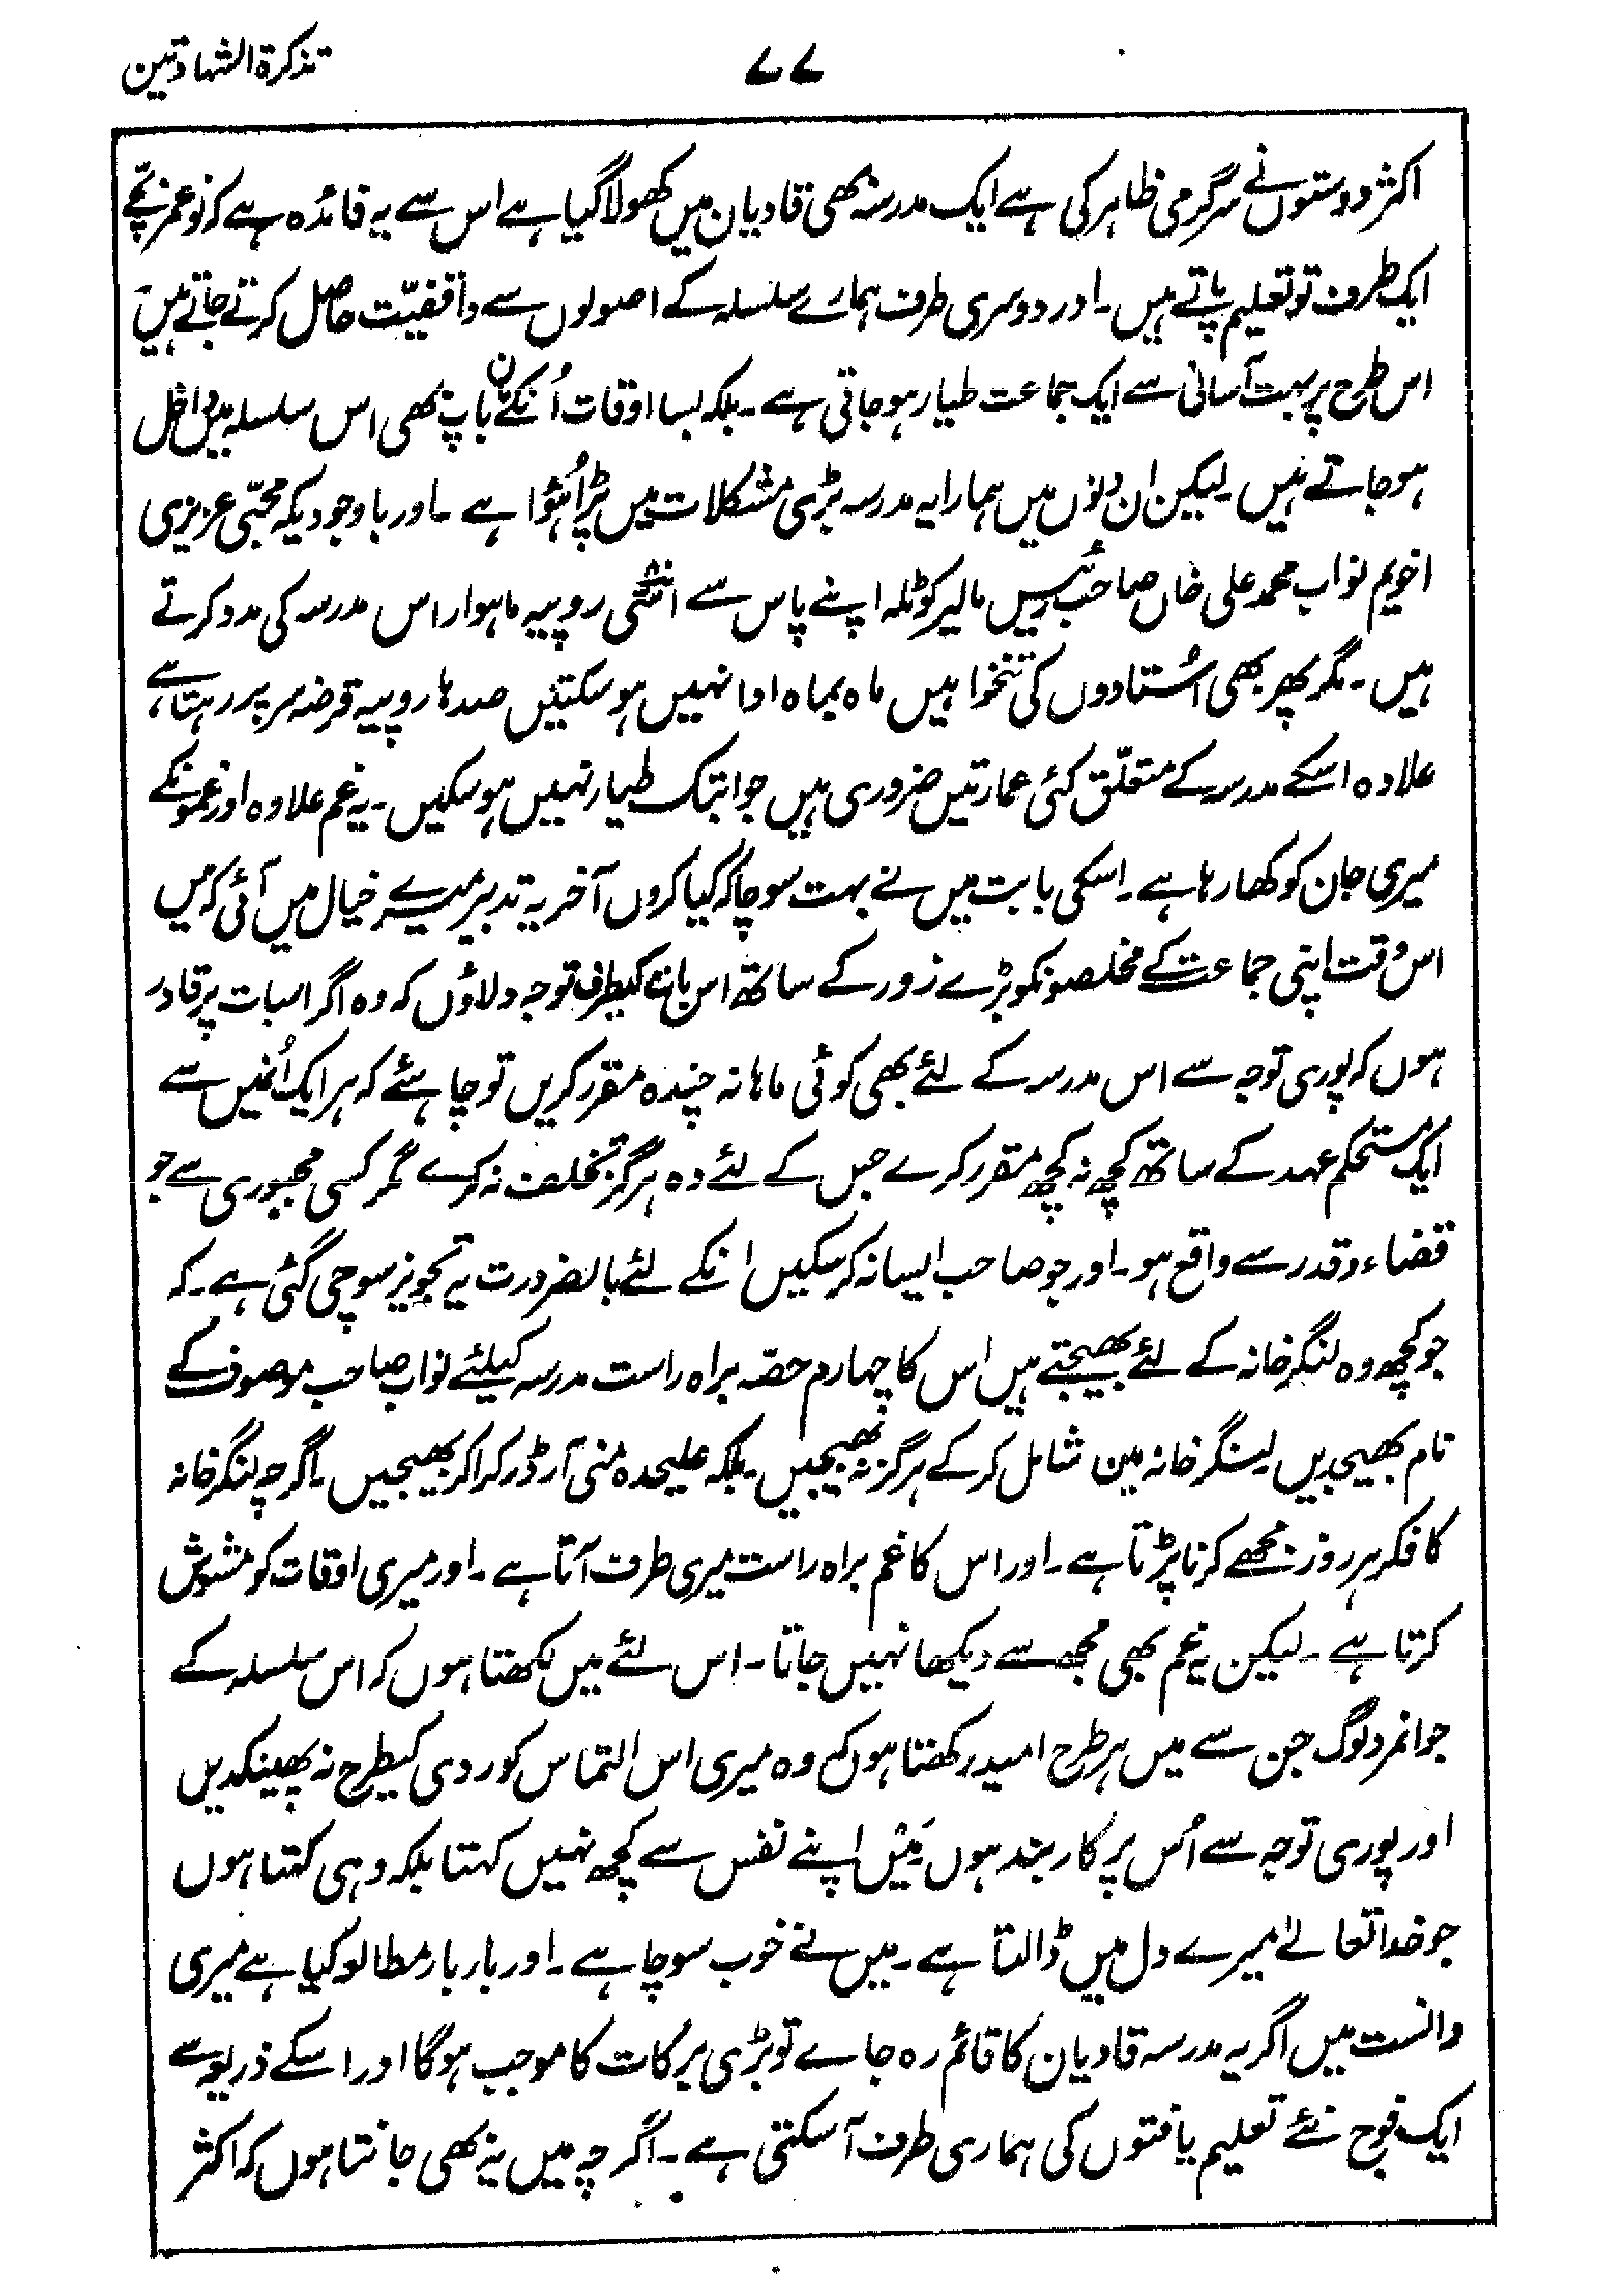 تذکرۃ الشہادتین
۷۷
اکثر دوستوں نے سرگرمی ظاہر کی ہے ایک مدرسہ بھی قادیان میں کھولا گیا ہے اس سے یہ فائدہ ہے کہ نوعمر بچّے
ایک طرف تو تعلیم پاتے ہیں۔ اور دوسری طرف ہمارے سلسلہ کے اصولوں سے واقفیّت حاصل کرتے جاتے ہیں
اس طرح پر بہت آسانی سے ایک جماعت طیار ہو جاتی ہے۔ بلکہ بسا اوقات اُنکے ماں باپ بھی اس سلسلہ میں داخل
ہو جاتے ہیں۔ لیکن ان دنوں میں ہمارا یہ مدرسہ بڑی مشکلات میں پڑا ہُوا ہے۔ اور باوجودیکہ محبّی عزیزی
اخویم نواب محمد علی خاں صاحب رئیس مالیر کوٹلہ اپنے پاس سے اسّی روپیہ ماہوار اس مدرسہ کی مدد کرتے
ہیں۔ مگر پھر بھی اُستادوں کی تنخواہیں ماہ بماہ ادا نہیں ہو سکتیں صدہا روپیہ قرضہ سر پر رہتا ہے
علاوہ اسکے مدرسہ کے متعلّق کئی عمارتیں ضروری ہیں جو ابتک طیار نہیں ہو سکیں۔ یہ غم علاوہ اور غموں کے
میری جان کو کھا رہا ہے۔ اسکی بابت میں نے بہت سوچا کہ کیا کروں آخر یہ تدبیر میرے خیال میں آئی کہ میں
اس وقت اپنی جماعت کے مخلصونکو بڑے زور کے ساتھ اس بات کیطرف توجہ دلاؤں کہ وہ اگر اسبات پر قادر
ہوں کہ پوری توجہ سے اس مدرسہ کے لئے بھی کوئی ماہانہ چندہ مقرر کریں تو چاہئے کہ ہر ایک اُنمیں سے
ایک مستحکم عہد کے ساتھ کچھ نہ کچھ مقرر کرے جس کے لئے وہ ہرگز تخلف نہ کرے مگر کسی مجبوری سے جو
قضاء و قدر سے واقع ہو۔ اور جو صاحب ایسا نہ کرسکیں انکے لئے بالضرورت یہ تجویز سوچی گئی ہے۔ کہ
جو کچھ وہ لنگر خانہ کے لئے بھیجتے ہیں اس کا چہارم حصہ براہ راست مدرسہ کیلئے نواب صاحب موصوف کے
نام بھیجدیں لنگر خانہ مین شامل کر کے ہرگز نہ بھیجیں۔ بلکہ علیحدہ منی آرڈر کرا کر بھیجیں۔ اگرچہ لنگر خانہ
کا فکر ہر روز مجھے کرنا پڑتا ہے۔ اور اس کا غم براہ راست میری طرف آتا ہے۔ اور میری اوقات کو مشوش
کرتا ہے۔ لیکن یہ غم بھی مجھ سے دیکھا نہیں جاتا۔ اس لئے میں لکھتا ہوں کہ اس سلسلہ کے
جوانمرد لوگ جن سے میں ہر طرح امید رکھتا ہوں کہ وہ میری اس التماس کو ردی کیطرح نہ پھینکدیں
اور پوری توجہ سے اُس پر کاربند ہوں مَیں اپنے نفس سے کچھ نہیں کہتا بلکہ وہی کہتا ہوں
جو خدا تعالےٰ میرے دل میں ڈالتا ہے۔ میں نے خوب سوچا ہے۔ اور بار بار مطالعہ کیا ہے میری
دانست میں اگر یہ مدرسہ قادیان کا قائم رہ جاے تو بڑی برکات کا موجب ہوگا اور اسکے ذریعہ سے
ایک فوج نئے تعلیم یافتوں کی ہماری طرف آسکتی ہے۔ اگرچہ میں یہ بھی جانتا ہوں کہ اکثر